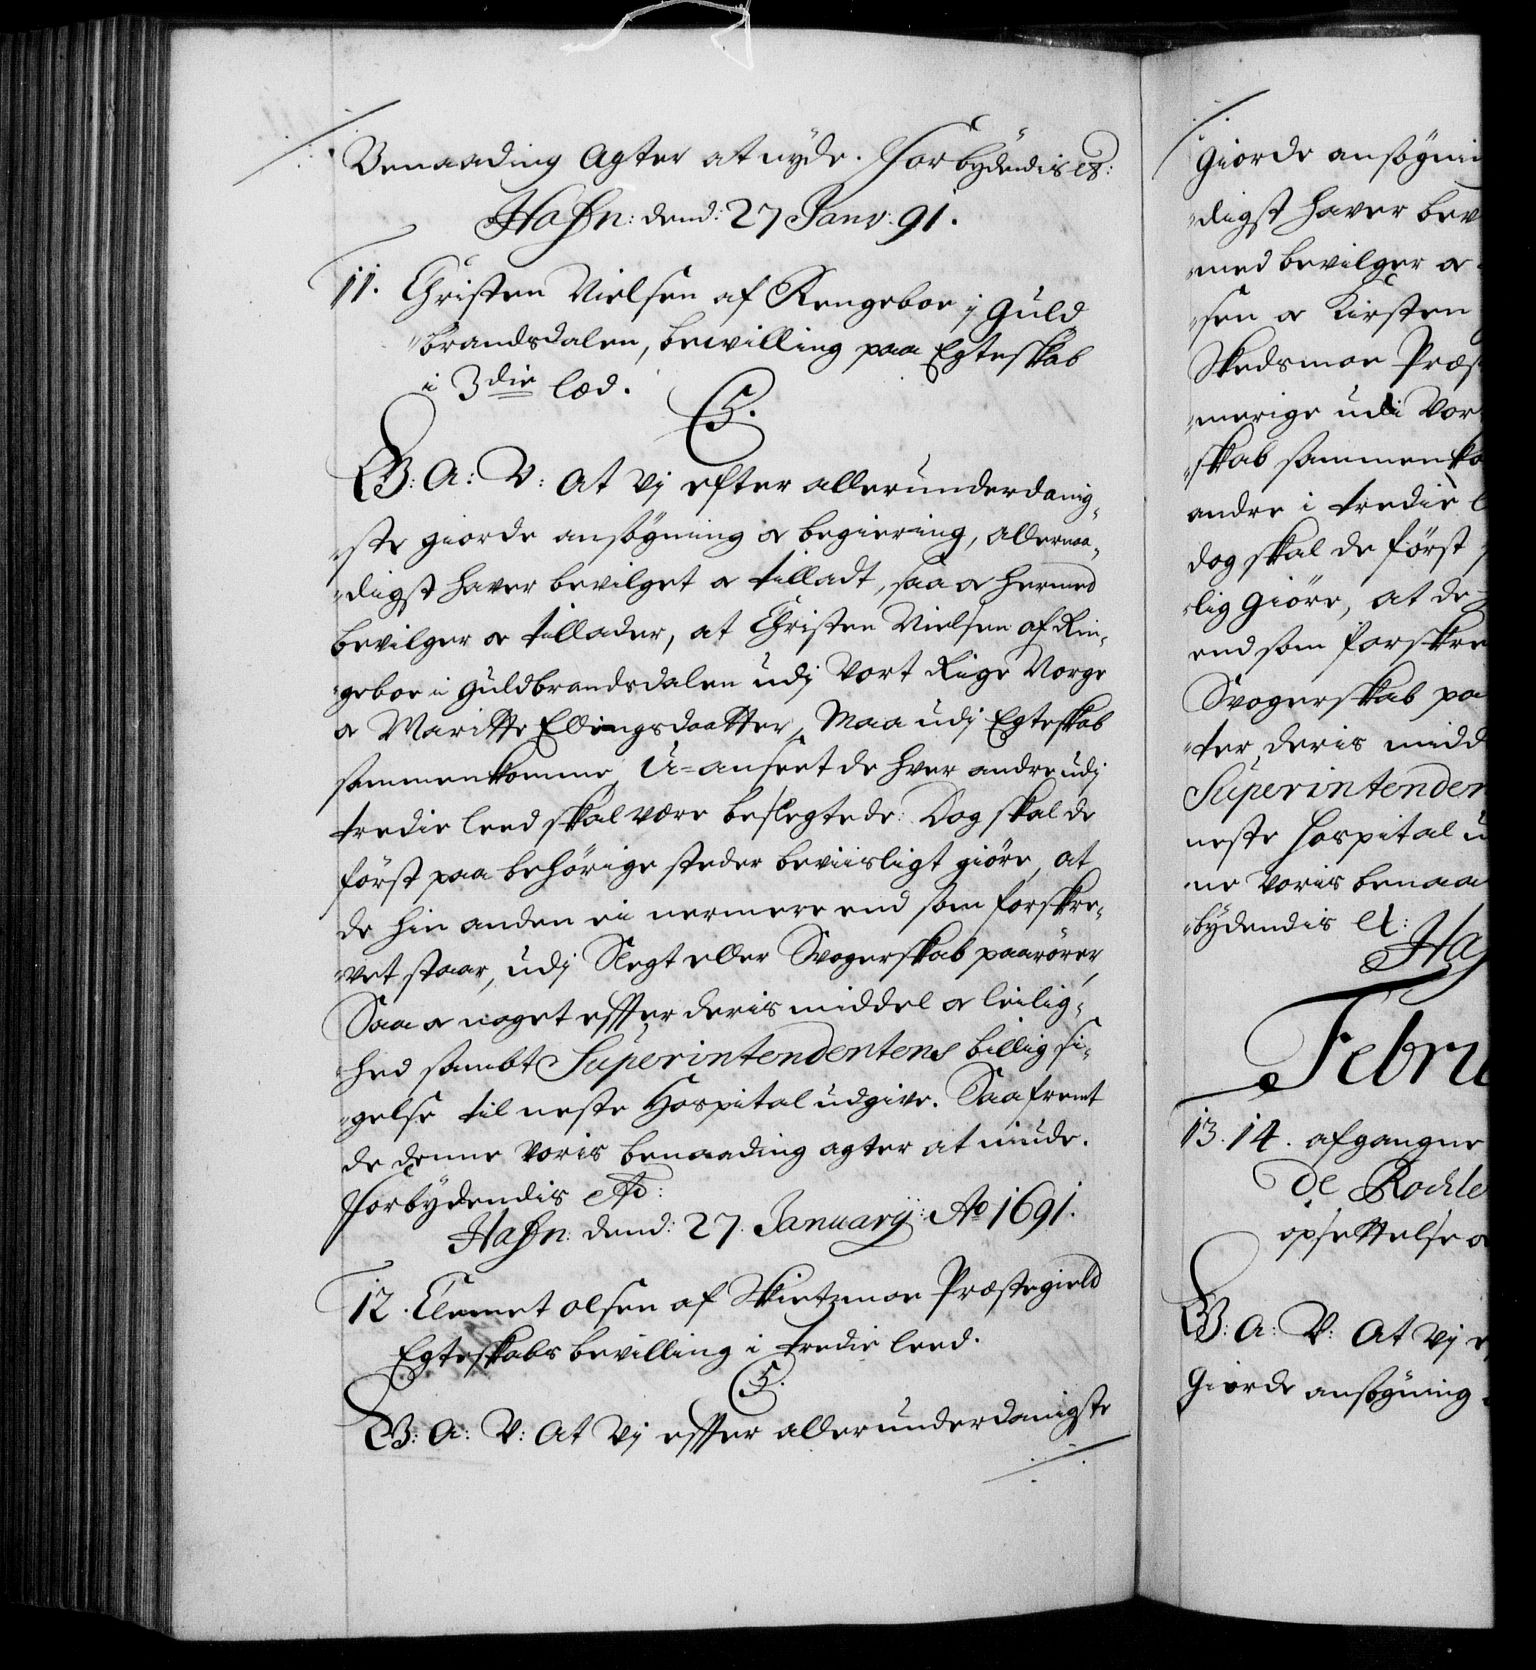 Benaading Agter at nyde. Forbydendis etc:
Hafn: dend: 27 Janv: 91.
11. Christen Nielsen af Rengeboe j Guld
brandsdalen, bewilling paa Egteskab
i 3die læd.
C5.
G: A: V: At Vj efter allerunderdanig„
„ste giorde ansögning oc begiering, allernaa„
„digst haver bevilget oc tilladt, saa oc hermed
bevilger oc tillader, at Christen Nielsen af Rin„
„geboe i Guldbrandsdalen udj Vort Rige Norge
oc Maritte Ellingsdaatter, Maa udj Egteskab
sammenkomme, U=anseet de hver andre udj
tredie leed skal være beslegtede: Dog skal de
först paa behörige steder beviisligt giöre, at
de hin anden ei nermere end som forskre„
„vet staar, udj Slegt eller Svogerskab paarörer,
Saa oc noget effter deris middel oc leilig„
„hed sambt Superintendentens billig si„
„gelse til neste Hospital udgive. Saafremt
de denne voris benaading agter at niude.
Forbydendis etc:
Hafn: dend: 27. Januarij: Ao 1691.
12. Clemet olsen af Skietzmoe Præstegield
Egteskabs bevilling i tredie leed.
C5.
G: A: V: At Vj effter allerunderdanigste
Giorde ansögnin
„digst haver bev
„med bevilger oc
„sen oc Kirsten
Skedsmoe Præst
„merige udi Vor
„skab sammenko
andre i tredie l
dog skal de först
„lig giöre, at de
end som forskre
Svogerskab pa
„ter deris midd
Superintenden
neste Hospital u
„ne voris benaa
„bydendis etc:
Haf
Febru
13. 14. afgangne
de Rochle
opsettelse o
G: A: V: At Vj e
Giorde ansögning